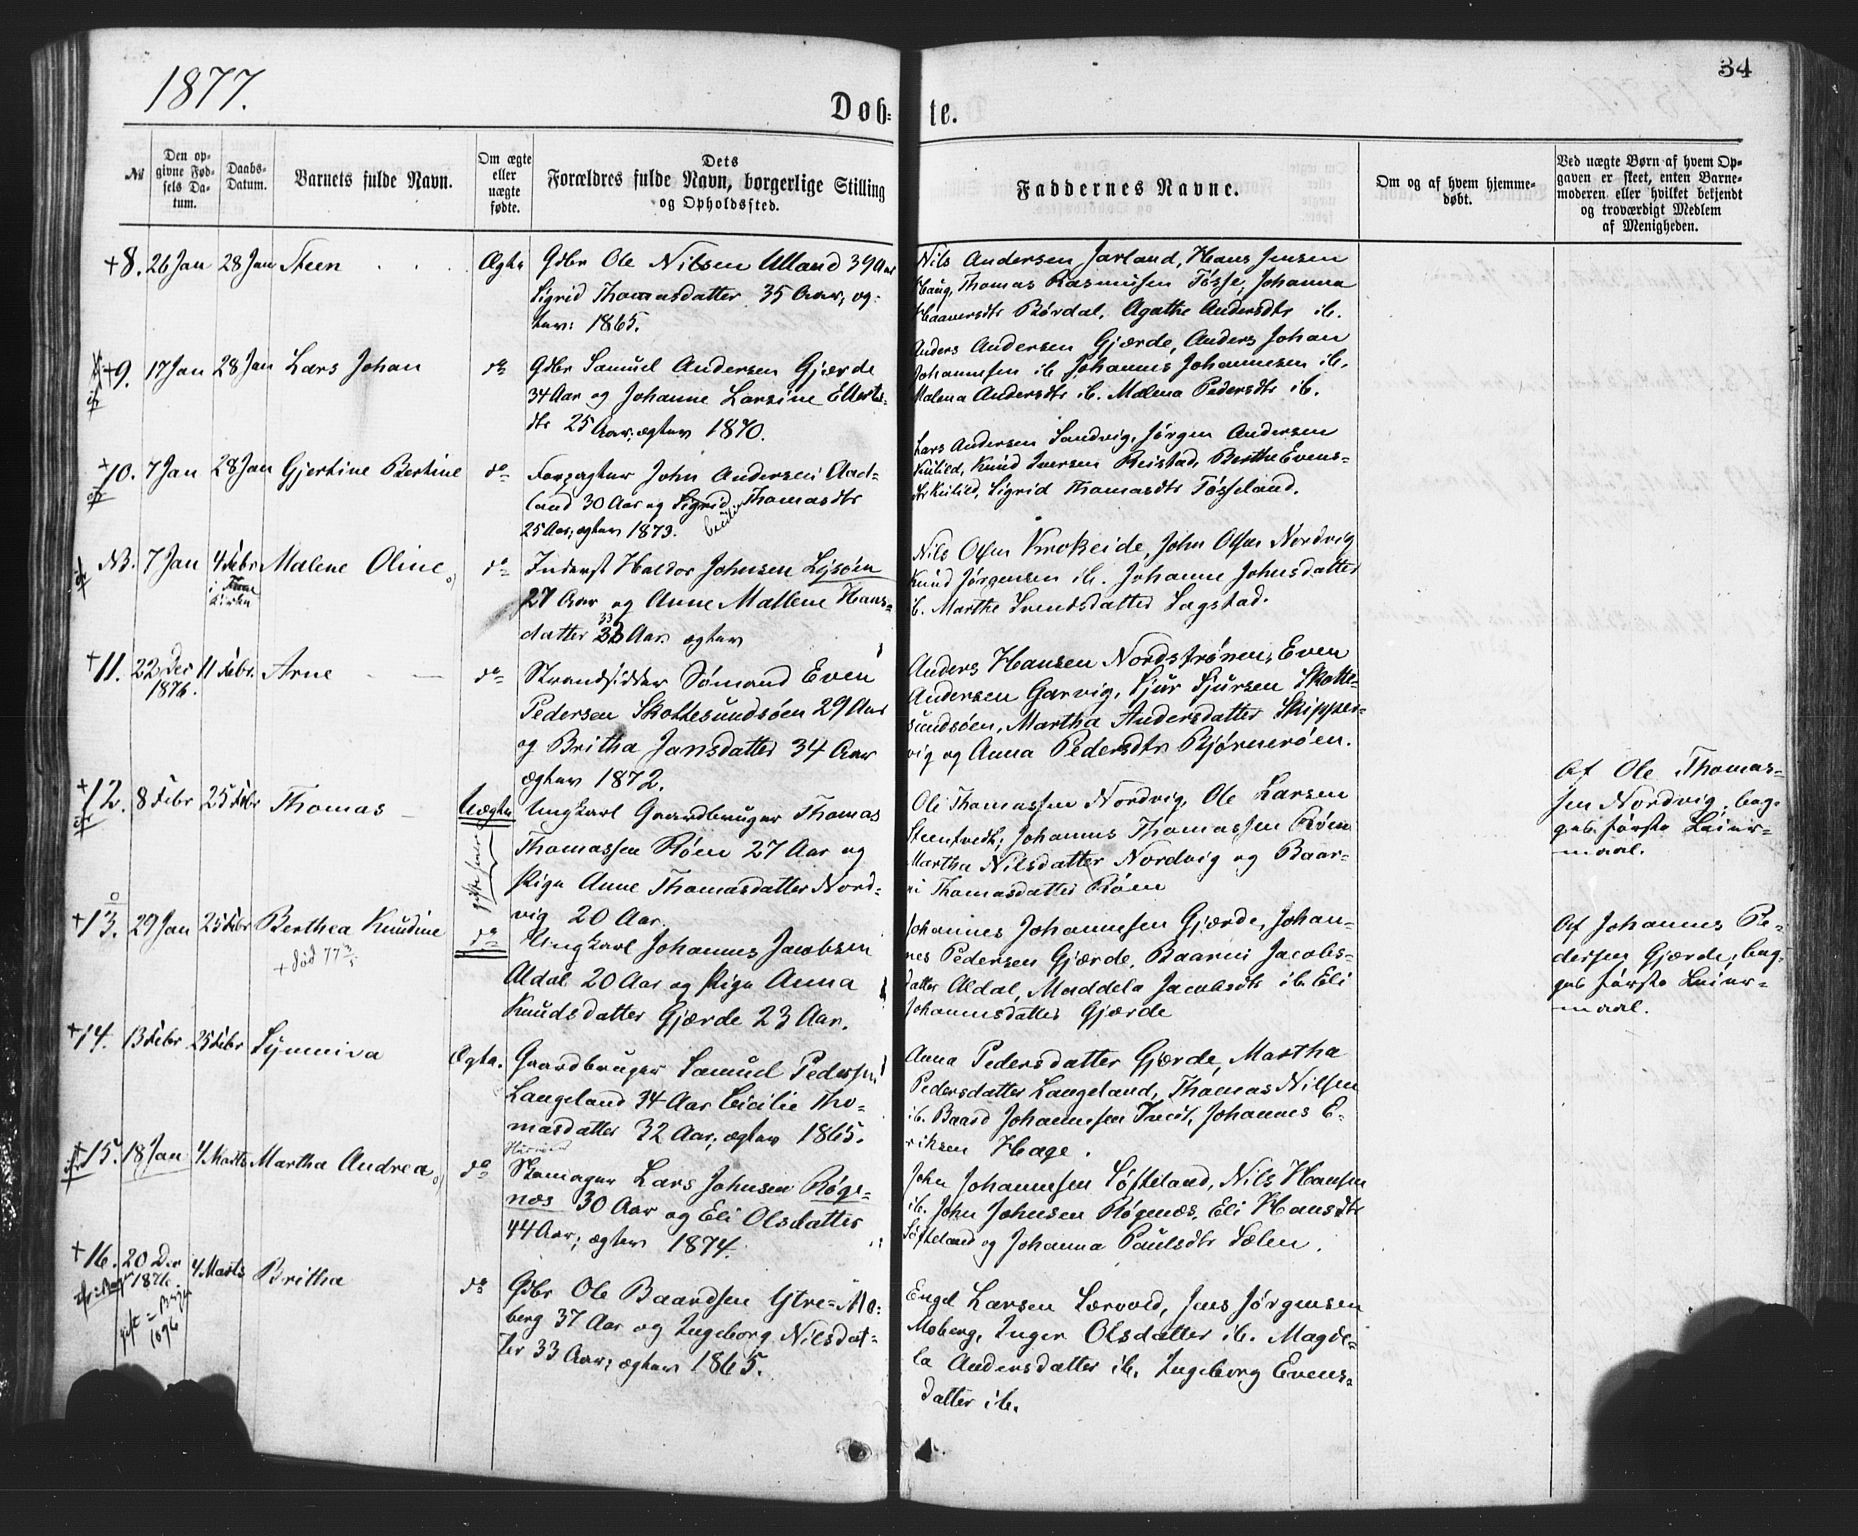 1877.
34
Døb-
te.
№
Den op-
givne Fød-
sels Da-
tum.
Daabs-
Datum.
Barnets fulde Navn.
Om ægte
eller
uægte
fødte.
Dets
Forældres fulde Navn, borgerlige Stilling
og Opholdssted.
Faddernes Navne.
Om og af hvem hjemme-
døbt.
Ved uægte Børn af hvem Op-
gaven er skeet, enten Barne-
moderen eller hvilket bekjendt
og troværdigt Medlem
af Menigheden.
+8. 26 Jan 28 Jan Steen Ægte Gdbr Ole Nilsen Ulland 39 Aar
Sigrid Thomasdatter 35 Aar, og-
tev: 1865.
Nils Andersen Jarland, Hans Jensen
Haug, Thomas Rasmusen Tøsse, Johanna
Haaversdtr Børdal, Agathe Andersdtr ib.
+9. 17 Jan 28 Jan Lars Johan do Gdbr Samuel Andersen Gjærde
34 Aar og Johanne Larsine Ellerts-
dtr 25 Aar; ægtev 1870.
Anders Andersen Gjærde, Anders Johan
Johannesen ib Johannes Johannesen ib,
Malena Andersdtr ib. Malena Pedersdtr ib.
+10. 7 Jan 28 Jan Gjertine Bertine do Forpagter John Andersen Aad-
land 30 Aar og Sigrid Thomasdtr
Cecilie
25 Aar; ægtev 1873.
Lars Andersen Sandvig, Jørgen Andersen
Kuhld, Knud Iversen Reistad, Berthe Evens-
dtr Kuhld, Sigrid Thomasdtr Tøsseland.
NB. 7 Jan 4 Febr Malene Oline do Inderst Haldor Johnsen Lysøen
27 Aar og Anne Mallene Hans-
datter 33 Aar. ægtev
Nils Olsen Krokeide, John Olsen Nordvig
Knud Jørgensen ib. Johanne Johnsdatter
ib. Marthe Svendsdatter Sagstad.
+11. 22 Dec 11 Febr. Arne do Strandsidder Sømand Even
1876.
Pedersen Skottesundsøen 29 Aar
og Britha Jansdatter 34 Aar
ægtev 1872.
Anders Hansen Nordstrønen, Even
Andersen Garvig, Sjur Sjursen Skotte-
sundsøen, Martha Andersdatter Skipper-
vig og Anna Pedersdtr Bjørnerøen.
+12. 8 Febr 25 Febr Thomas Uægte Ungkarl Gaardbruger Thomas
Thomassen Røen 27 Aar og
Pige Anne Thomasdatter Nord-
vig 20 Aar.
Ole Thomassen Nordvig, Ole Larsen
Stentvedt, Johannes Thomassen Røen
Martha Nilsdatter Nordvig og Baar-
ni Thomasdatter Røen
Af Ole Thomas-
sen Nordvig, beg-
ges første Leier-
maal.
+13. 29 Jan 25 Febr Berthea Knudine do Ungkarl Johannes Jacobsen
+ død 77 3/5
Aldal 20 Aar og Pige Anna
Knudsdatter Gjærde 23 Aar.
Johannes Johannesen Gjærde, Johan-
nes Pedersen Gjærde, Baarni Jacobs-
datter Aldal, Maddela Jacobsdtr ib. Eli
Johannesdatter Gjærde
Af Johannes Pe-
dersen Gjærde; beg-
ges første Leier-
maal.
+14. 13 Febr 25 Febr Synneva Ægte. Gaardbruger Samuel Pedersen
Langeland 34 Aar Cicilie Tho-
masdatter 32 Aar; ægtev 1865.
Anna Pedersdatter Gjærde, Martha
Pedersdatter Langeland, Thomas Nilsen
ib. Baard Johannesen Tveit, Johannes E-
riksen Hage.
+15. 18 Jan 4 Marts Martha Andrea do Skomager Lars Johnsen Røge-
næs 30 Aar og Eli Olsdatter
44 Aar; ægtev 1874.
John Johannesen Søfteland, Nils Hansen
ib. John Johnsen Røgenæs, Eli Hansdtr
Søfteland og Johanna Paulsdtr Sælen.
+16. 20 Der 4 Marts Britha do Gdbr Ole Baardsen Ytre-Mo-
1876
gift = Berge
1896
berg 37 Aar og Ingeborg Nilsdat-
ter 33 Aar; ægtev 1865.
Engel Larsen Lærvold, Jens Jørgensen
Moberg, Inger Olsdatter ib. Magde-
la Andersdatter ib. Ingeborg Evens-
datter ib.